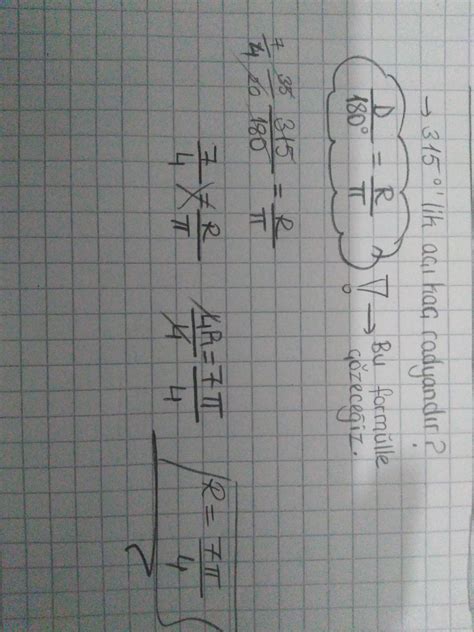 → 315°'lik açı kaç radyandır?
D/180° = R/π → Bu formülle
çözeceğiz.
7/4 35/20 315/180 = R/π
7/4 = R/π
4R/4 = 7π/4
R = 7π/4